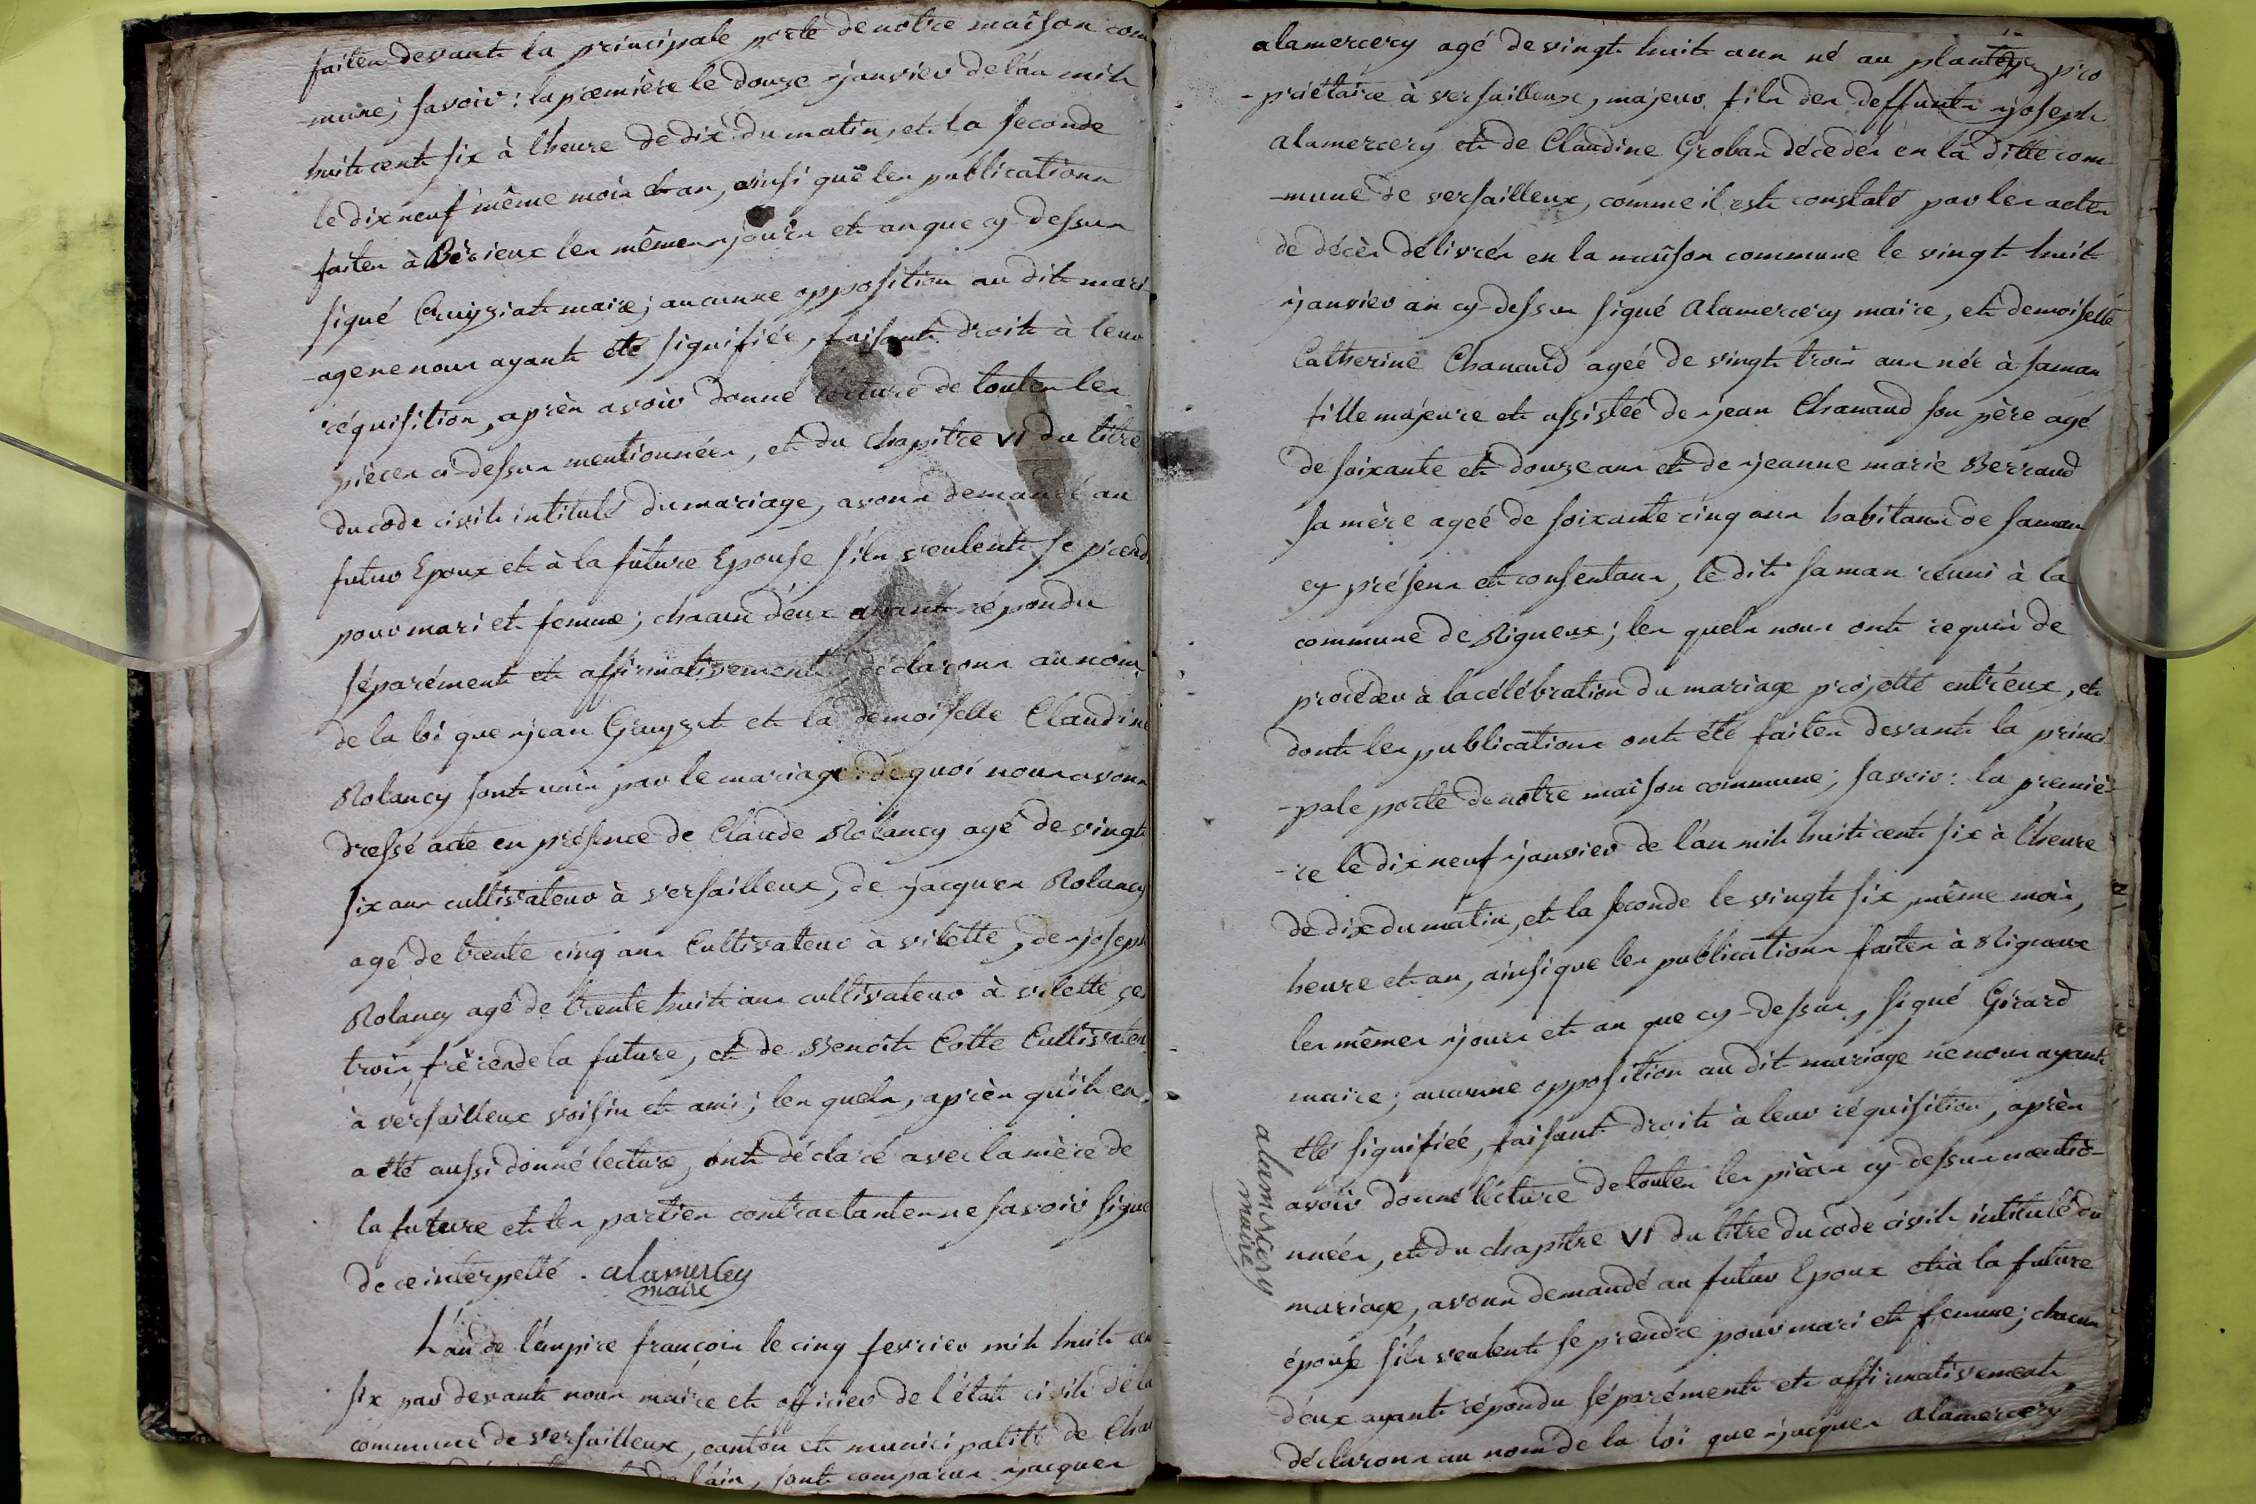 faites devant la principale porte de notre maison com
-mune; savoir: la première le douze janvier de l'an mil
huit cent six à l'heure de dix du matin, et la seconde
le dix neuf même mois et an, ainsi que les publications
faites à Birieux les mêmes jours et an que cy-dessus
signé Cruiziat maire; aucunne opposition au dit mari
-age ne nous ayant été signifiée, faisant droit à leur
réquisition, après avoir donné lecture de toutes les
pièces ci-dessus mentionnées, et du chapitre VI du titre
du code civil intitulé du mariage, avons demandé au
futur Epoux et à la future Epouse s'ils veulent se prend
pour mari et femme; chacun d'eux ayant répondu
séparément et affirmativement, déclarons au nom
de la loi que jean Gruyzet et la demoiselle Claudine
Rolancy sont unis par le mariage: de quoi nous avons
dressé acte en présence de Claude Rolancy agé de vingt
six ans cultivateur à versailleux, de jacques Rolancy
agé de trente cinq ans Cultivateur à vilette, de joseph
Rolancy agé de trente huit ans cultivateur à vilette ces
trois frères de la future, et de Benoit Cotte Cultivateu
à versailleux voisin et ami; les quels, après qu'il en
a été aussi donné lecture, ont déclaré avec la mère de
la future et les parties contractantes ne savoir signe
de ce interpellé. alamercery
maire
L'an de l'empire françois le cinq fevrier mil huit cen
six par devant nous maire et officier de l'état civil de la
commune de versailleux, canton et municipalité de Cha
de l'ain, sont comparus jacques
alamercery agé de vingt huit ans né au plantay pro
-priétaire à versailleux, majeur, fils des deffunts joseph
alamercery et de Claudine Groban décédés en la ditte com
-mune de versailleux, comme il est constaté par les actes
de décès délivrés en la maison commune le vingt huit
janvier an cy-dessus signé alamercery maire, et demoiselle
Catherine Chanaud agéé de vingt trois ans née à saman
fille majeure et assistéé de jean Chanaud son père agé
de soixante et douze ans et de jeanne marie Berraud
sa mère ageé de soixante cinq ans habitans de saman
cy présens et consentans, le dit saman réuni à la
commune de Rigneux; les quels nous ont requis de
procéder à la célébration du mariage projetté entr'eux, et
dont les publications ont été faites devant la princi
-pale porte de notre maison commune; savoir: la premiè-
-re le dix neuf janvier de l'an mil huit cent six à l'heure
de dix du matin, et la seconde le vingt six, même mois,
heure et an, ainsi que les publications faites à Rigneux
les mêmes jours et an que cy-dessus, signé Girard
maire; aucunne opposition au dit mariage ne nous ayant
été signifiéé, faisant droit à leur réquisition, après
avoir donné lecture de toutes les pièces cy-dessus mentio-
nnées, et du chapitre VI du titre du code civil intitulé du
mariage, avons demandé au futur Epoux et à la future
épouse s'ils veulent se prendre pour mari et femme; chacun
d'eux ayant répondu séparément et affirmativement
déclarons au nom de la loi que jacques alamercery
alamercery
maire